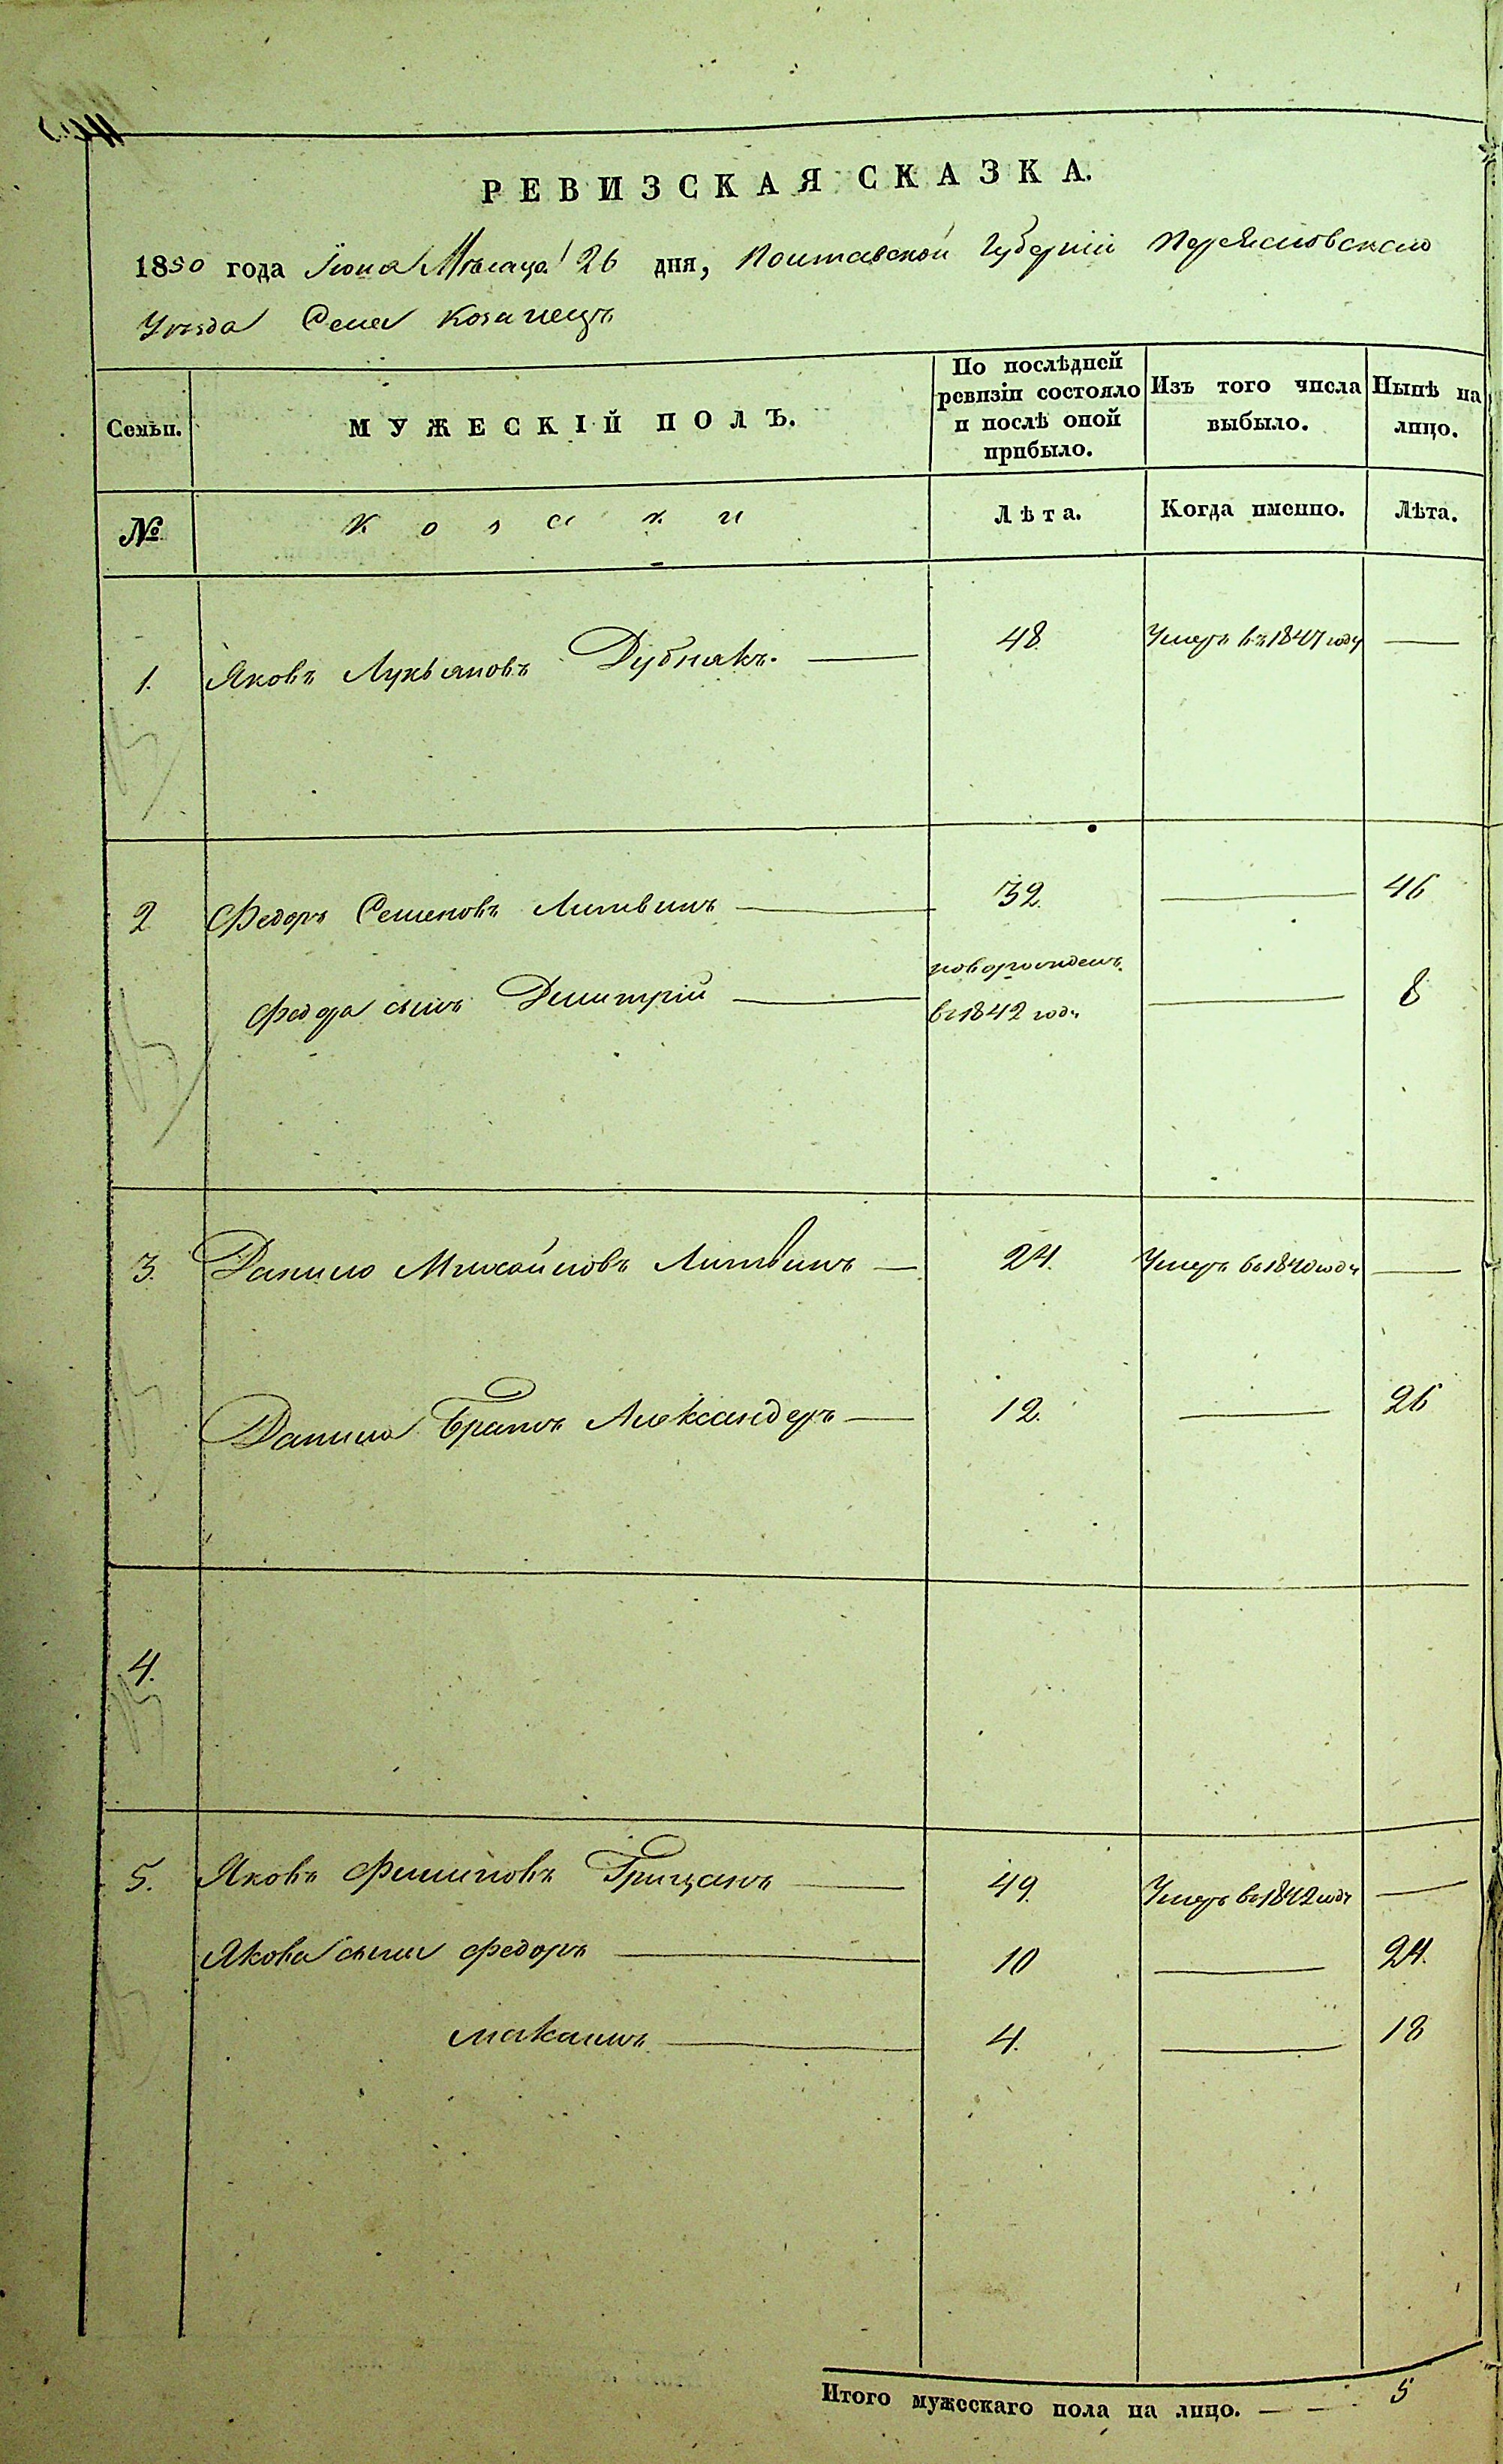 РЕВИЗСКАЯ СКАЗКА.
1850 года Іюна Мѣсяца 26 дня, Полтавской Губерніи Переяславского
Уѣзда Села Козинецъ
Семьи.
МУЖЕСКІЙ ПОЛЪ.
По послѣдней ревизіи состояло и послѣ оной прибыло.
Изъ того числа выбыло.
Нынѣ на лицо.
№
Козаки
Лѣта.
Когда именно.
Лѣта.
1. Яковъ Лукьяновъ Дубнякъ. 48. Умеръ въ 1847 году
2 Федоръ Семеновъ Литвинъ 32. 46
Федора сынъ Дмитрій новорожденъ въ 1842 году 8
3. Данило Михайловъ Литвинъ 24. Умеръ въ 1840 году
Данила Братъ Александеръ 12. 26
4.
5. Яковъ Филиповъ Грицанъ 49. Умеръ въ 1842 году
Якова сыны Федоръ 10 24.
Максимъ 4. 18
Итого мужескаго пола на лицо. 5